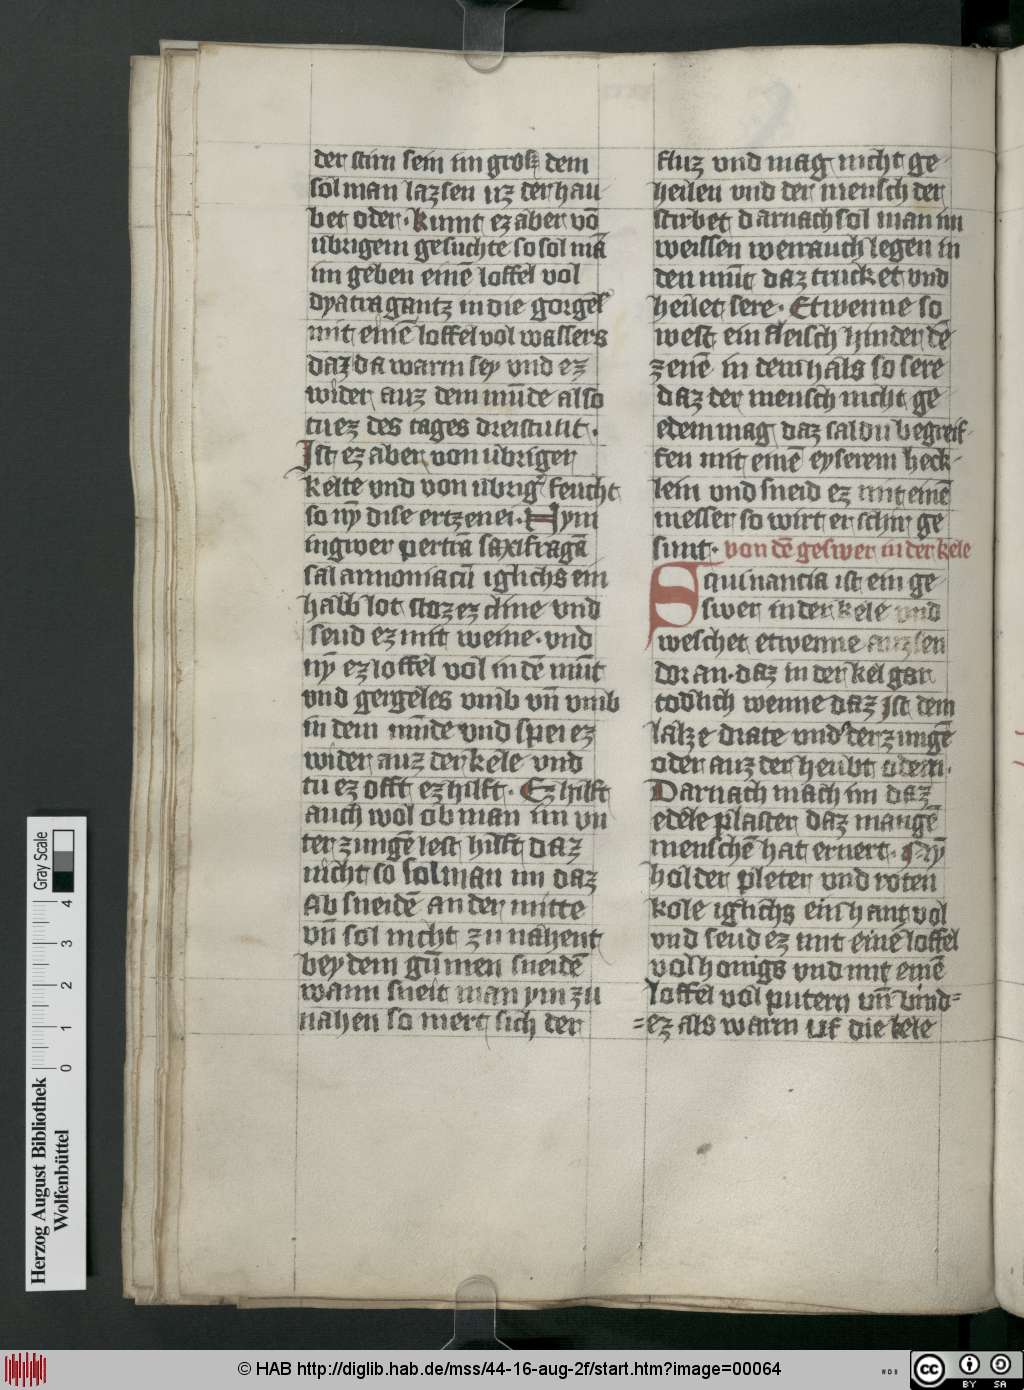 der stirn sein im grosz dem
sol man lazsen uz der hau-
bet oder · kumt ez aber vō
übrigem gesuchte so sol mā
im geben einē loffel vol
dyatragantz in die gorgel
mit einē loffel vol wassers
daz da warm sey vnd ez
wider auz dem mūde also
tu ez des tages dreistunt ·
Ist ez aber von übriger
kelte vnd von übrig̓ feucht
so nȳ dise ertzenei · Nym
ingwer pertrā saxifragā
sal armoniacū iglichs ein
halb lot stoz ez cline vnd
seud ez mit weine · vnd
nȳ ez loffel vol in dē mūt
vnd gergeles vmb vn̄ vmb
in dem mūde vnd spei ez
wider auz der kele vnd
tu ez offt ez hilft · Ez hilft
auch wol ob man im vn
ter zungē lest hilft daz
nicht so sol man im daz
ab sneidē an der mitte
vn̄ sol nicht zu nahent
bey dem gūmen sneidē
wann sneit man ym zu
nahen so mert sich der
fluz vnd mag nicht ge-
heilen vnd der mensch der
stirbet darnach sol man im
weissen weirauch legen in
den mūt daz trucket vnd
heilet sere · Etwenne so
west ein fleisch hinder dē
zenē in dem hals so sere
daz der mensch nicht ge
edem mag daz sal du begreif-
fen mit einē eyserem heck-
lein vnd sneid ez mit einē
messer so wirt er schir ge
sunt · von dē geswer in der kele
Squinantia ist ein ge-
swer in der kele vnd
weschet etwenne auzsen
dor an · daz in der kel gar
todlich wenne daz Ist dem
lazze drate vnd̓ der zungē
oder auz der heubt odern ·
Darnach mach im daz
edele plaster daz mangē
menschē hat ernert · Nȳ
holder pleter vnd roten
kole iglichs ein hant vol
vnd seud ez mit einē loffel
vol honigs vnd mit einē
loffel vol putern vn̄ bind=
=ez als warm uf die kele
Gray Scale
0 1 2 3 4
Herzog August Bibliothek
Wolfenbüttel
© HAB http://diglib.hab.de/mss/44-16-aug-2f/start.htm?image=00064
WDB
cc BY SA